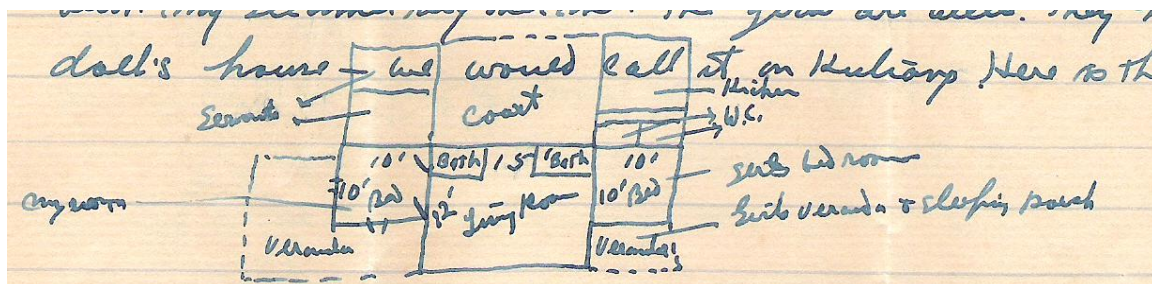 The are
doll's house - we would call it on Kuliang. Here is th
Court
Kitchen
Servants
W.C.
10' Bath 15' Bath 10'
girls bedroom
my room
10' Bed 12' Living Room 10' Bed
Girls Veranda + Sleeping Porch
Veranda Veranda